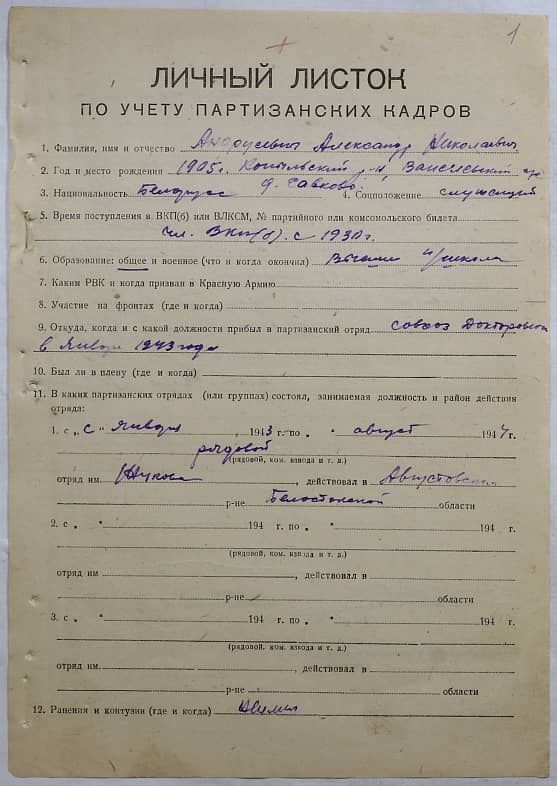 1
ЛИЧНЫЙ ЛИСТОК
ПО УЧЕТУ ПАРТИЗАНСКИХ КАДРОВ
1. Фамилия, имя и отчество Андрусевич Александр Николаевич
2. Год и место рождения 1905 г. Копыльский р-н
3. Национальность Белорус д. Савково 4. Соцположение служащий
5. Время поступления в ВКП(б) или ВЛКСМ, № партийного или комсомольского билета
чл. ВКП(б) с 1930 г.
6. Образование: общее и военное (что и когда окончил) школа
7. Каким РВК и когда призван в Красную Армию
8. Участие на фронтах (где и когда)
9. Откуда, когда и с какой должности прибыл в партизанский отряд совхоз
в январе 1943 года
10. Был ли в плену (где и когда)
11. В каких партизанских отрядах (или группах) состоял, занимаемая должность и район действия
отряда:
1. с „с" января 1943 г. по „ " август 1944 г.
рядовой
(рядовой, ком. взвода и т. д.)
отряд им Жукова, действовал в Августовском
р-не Белостокской области
2. с „ " 194 г. по „ " 194 г.
(рядовой, ком. взвода и т. д.)
отряд им , действовал в
р-не области
3. с „ " 194 г. по „ " 194 г.
(рядовой, ком. взвода и т. д.)
отряд им , действовал в
р-не области
12. Ранения и контузии (где и когда)